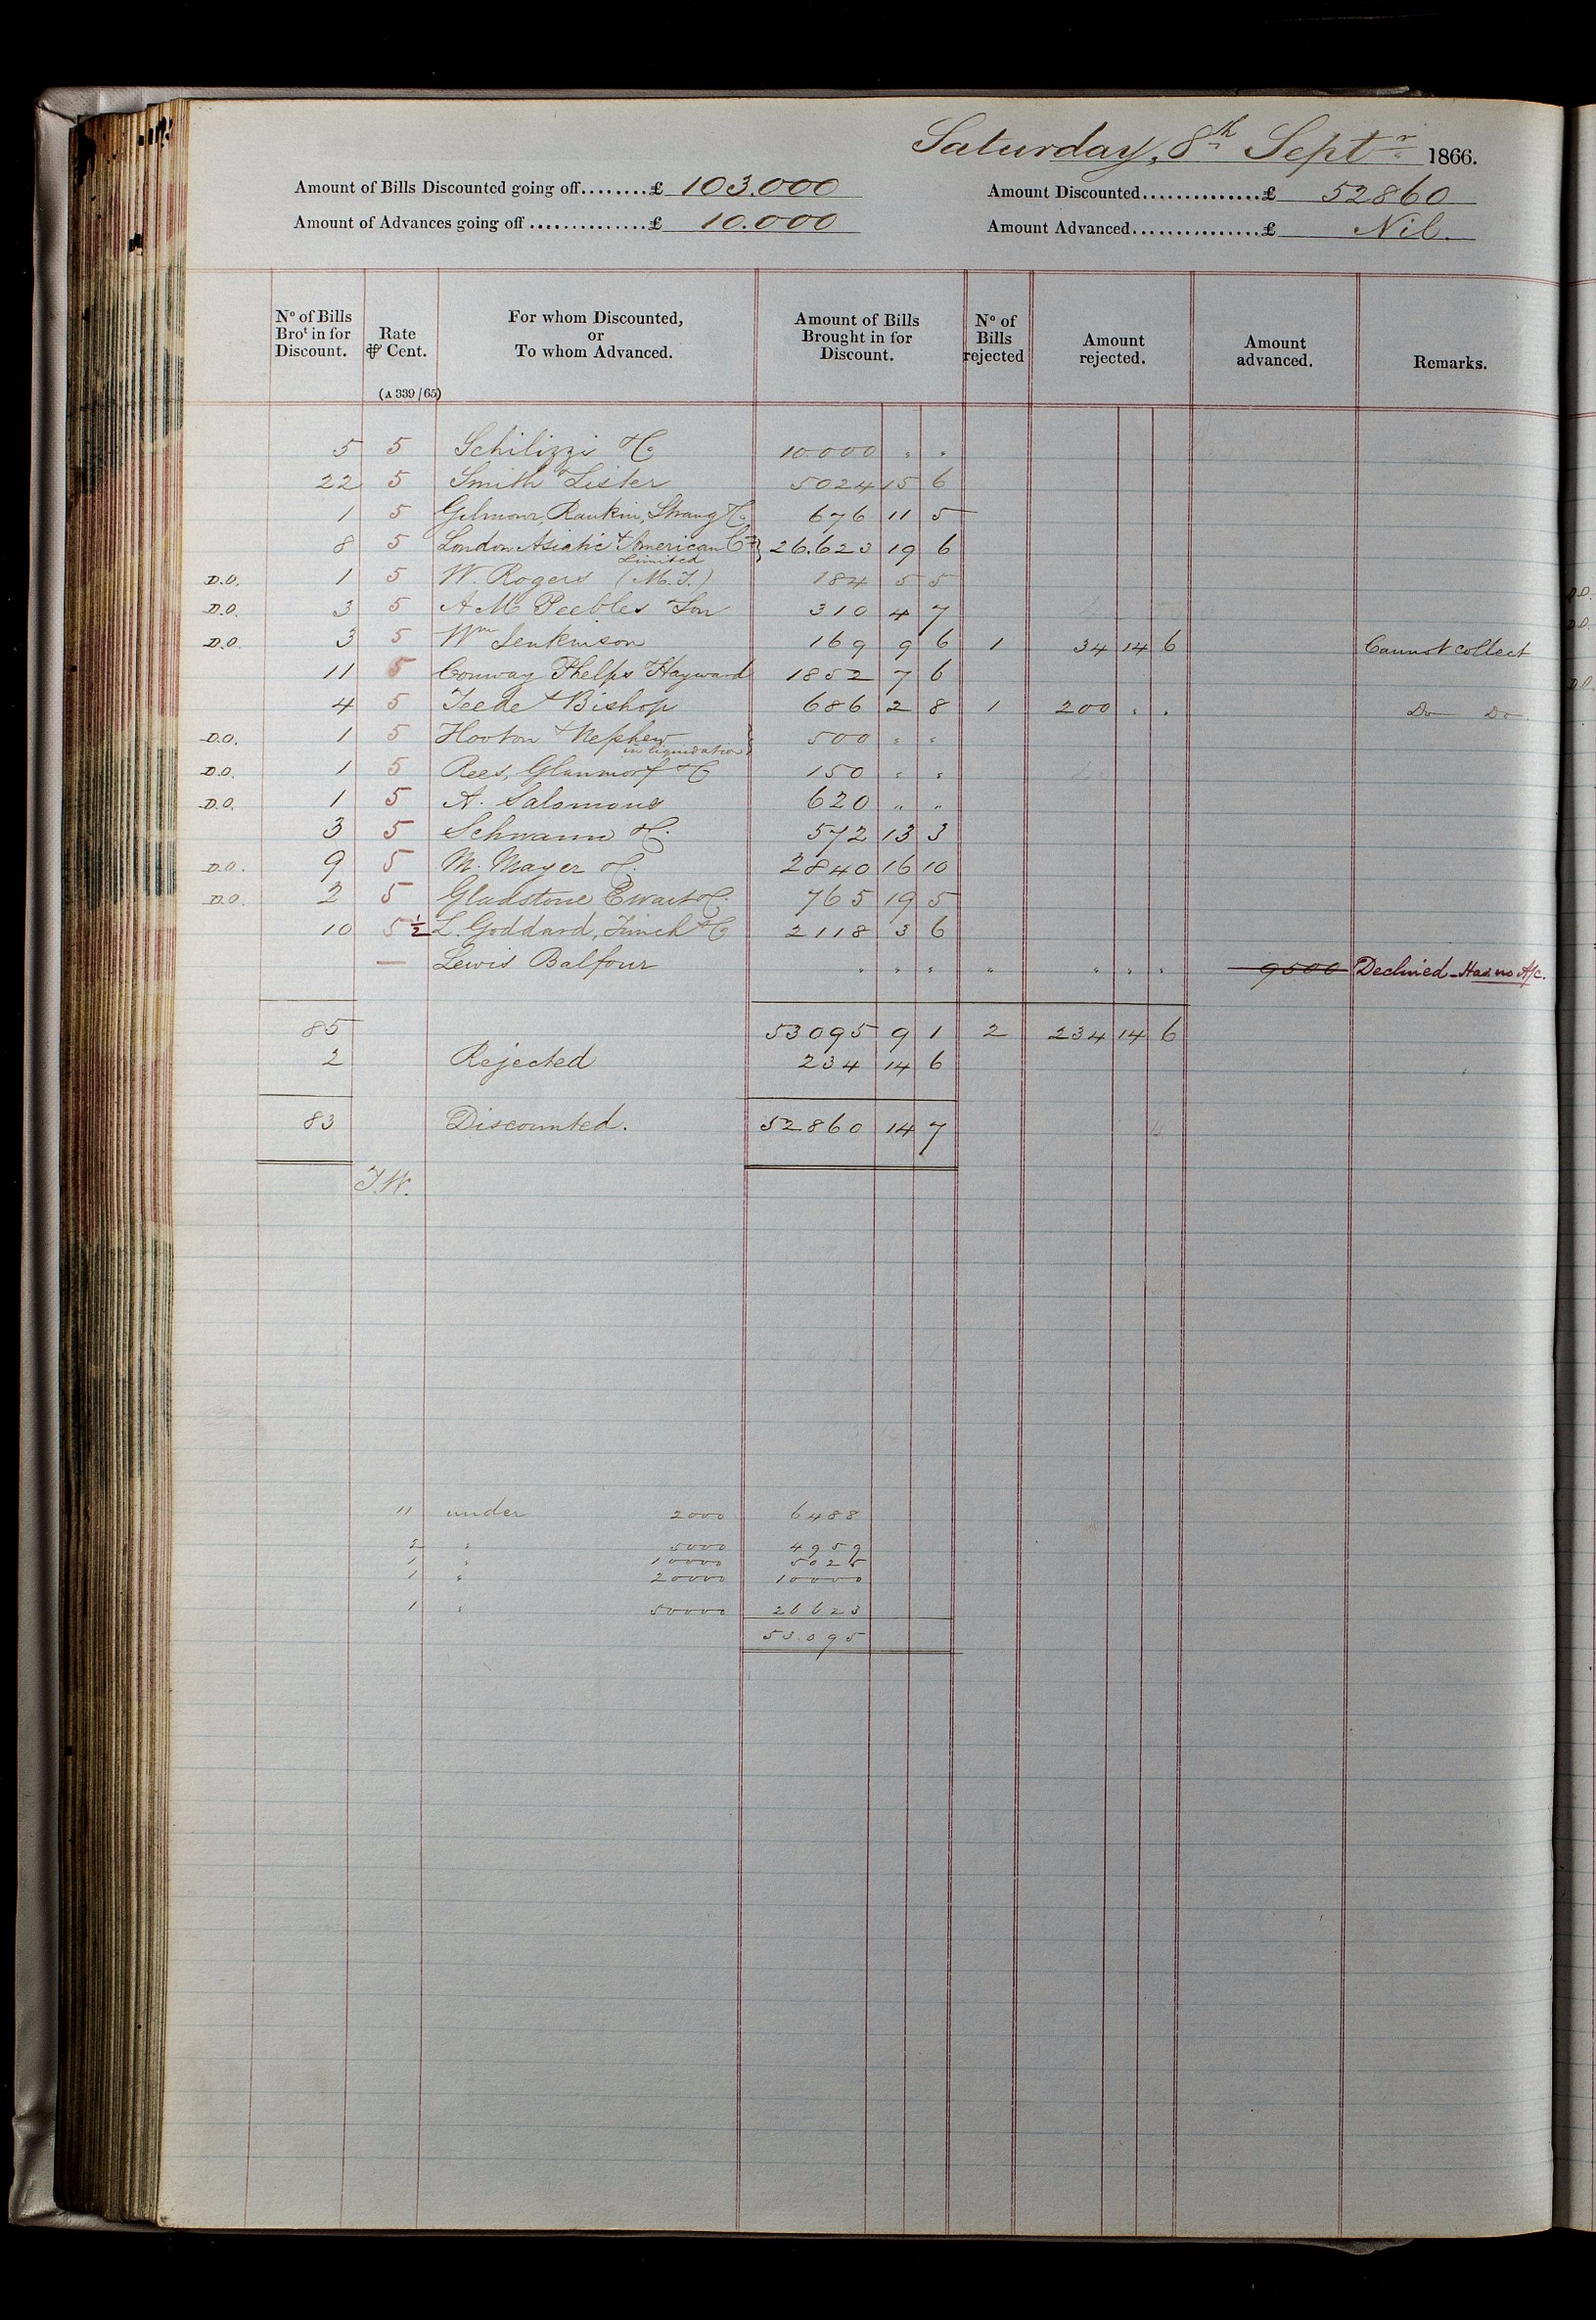 Saturday, 8th Septr 1866.
Amount of Bills Discounted going off........£ 103.000 Amount Discounted..............£ 52860
Amount of Advances going off..............£ 10.000 Amount Advanced...............£ Nil.
No of Bills Brot in for Discount. Rate ⅌ Cent. (A 339/65) For whom Discounted, or To whom Advanced. Amount of Bills Brought in for Discount. No of Bills rejected Amount rejected. Amount advanced. Remarks.
5 5 Schilizzi & Co 10.000 " "
22 5 Smith & Lister 5024 15 6
1 5 Gilmour, Rankin, Strang & Co 676 11 5
8 5 London Asiatic & American Co Limited } 26.623 19 6
D.O. 1 5 W. Rogers (M.I.) 184 5 5
D.O. 3 5 A M Peebles & Son 310 4 7
D.O. 3 5 Wm Jenkinson 169 9 6 1 34 14 6 Cannot collect
11 5 Conway Phelps & Hayward 1852 7 6
4 5 Teede & Bishop 686 2 8 1 200 . . Do Do
D.O. 1 5 Hooton & Nephew in liquidation } 500 " "
D.O. 1 5 Rees, & Co 150 " "
D.O. 1 5 A. Salomons 620 " "
3 5 Schwann & Co. 572 13 3
D.O. 9 5 M. Mayer & Co. 2840 16 10
D.O. 2 5 Gladstone Ewart & Co. 765 19 5
10 5½ L. Goddard, Finch & Co 2118 3 6
— Lewis Balfour " " " " " " " 9500 Declined - Has no A/c.
85 53095 9 1 2 234 14 6
2 Rejected 234 14 6
83 Discounted. 52860 14 7
J.W.
11 under 2000 6488
2 " 5000 4959
1 " 10000 5025
1 " 20000 10000
1 " 50000 26623
53.095